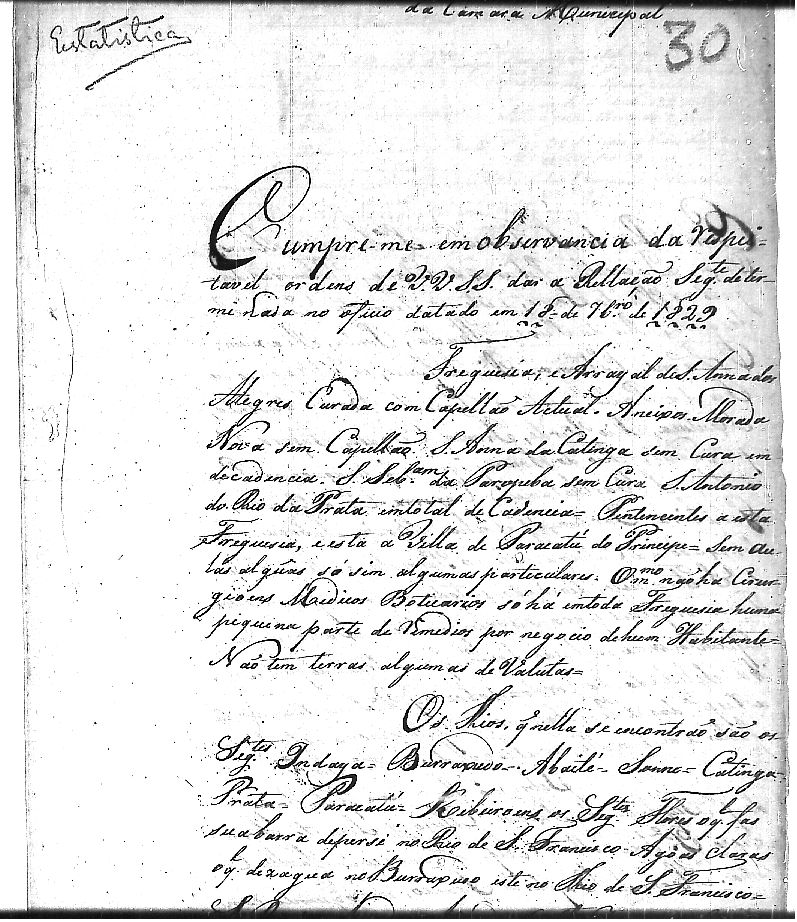 da Camara Municipal
Estatistica
30
Cumpre-me em observancia da respei-
tavel ordens de V.V.S.S. dar a Rellação Seg.te deter-
minada no oficio datado em 18 de 7br.o de 1829
Freguesia, e Arrayal de S. Anna dos
Alegres Curada com Capellão Actual. Aneixos. Morada
Nova sem Capellão. S. Anna da Catinga sem Cura em
decadencia. S. Seb.am da Paropeba sem Cura S. Antonio
do Rio da Prata em total deCadencia= Pertencentes a esta
Freguesia, e esta a Villa de Paracatú do Principe= Sem Au-
las algũas só sim algumas particulares. O m.mo não há Cirur-
gioens Medicos Boticarios só há em toda Freguesia huma
pequena parte de remedios por negocio de hum Habitante=
Não tem terras algumas de Valutas=
Os Rios, q' nella se encontrão são os
Seg.tes Indaya= Burraxudo= Abaité= Sonno= Catinga=
Prata= Paracatú= Ribeiroens os Seg.tes Flores o q.l fas
sua barra de persi no Rio de S. Francisco Agoas claras
o q.l dezagua no Burraxudo este no Rio de S. Francisco=